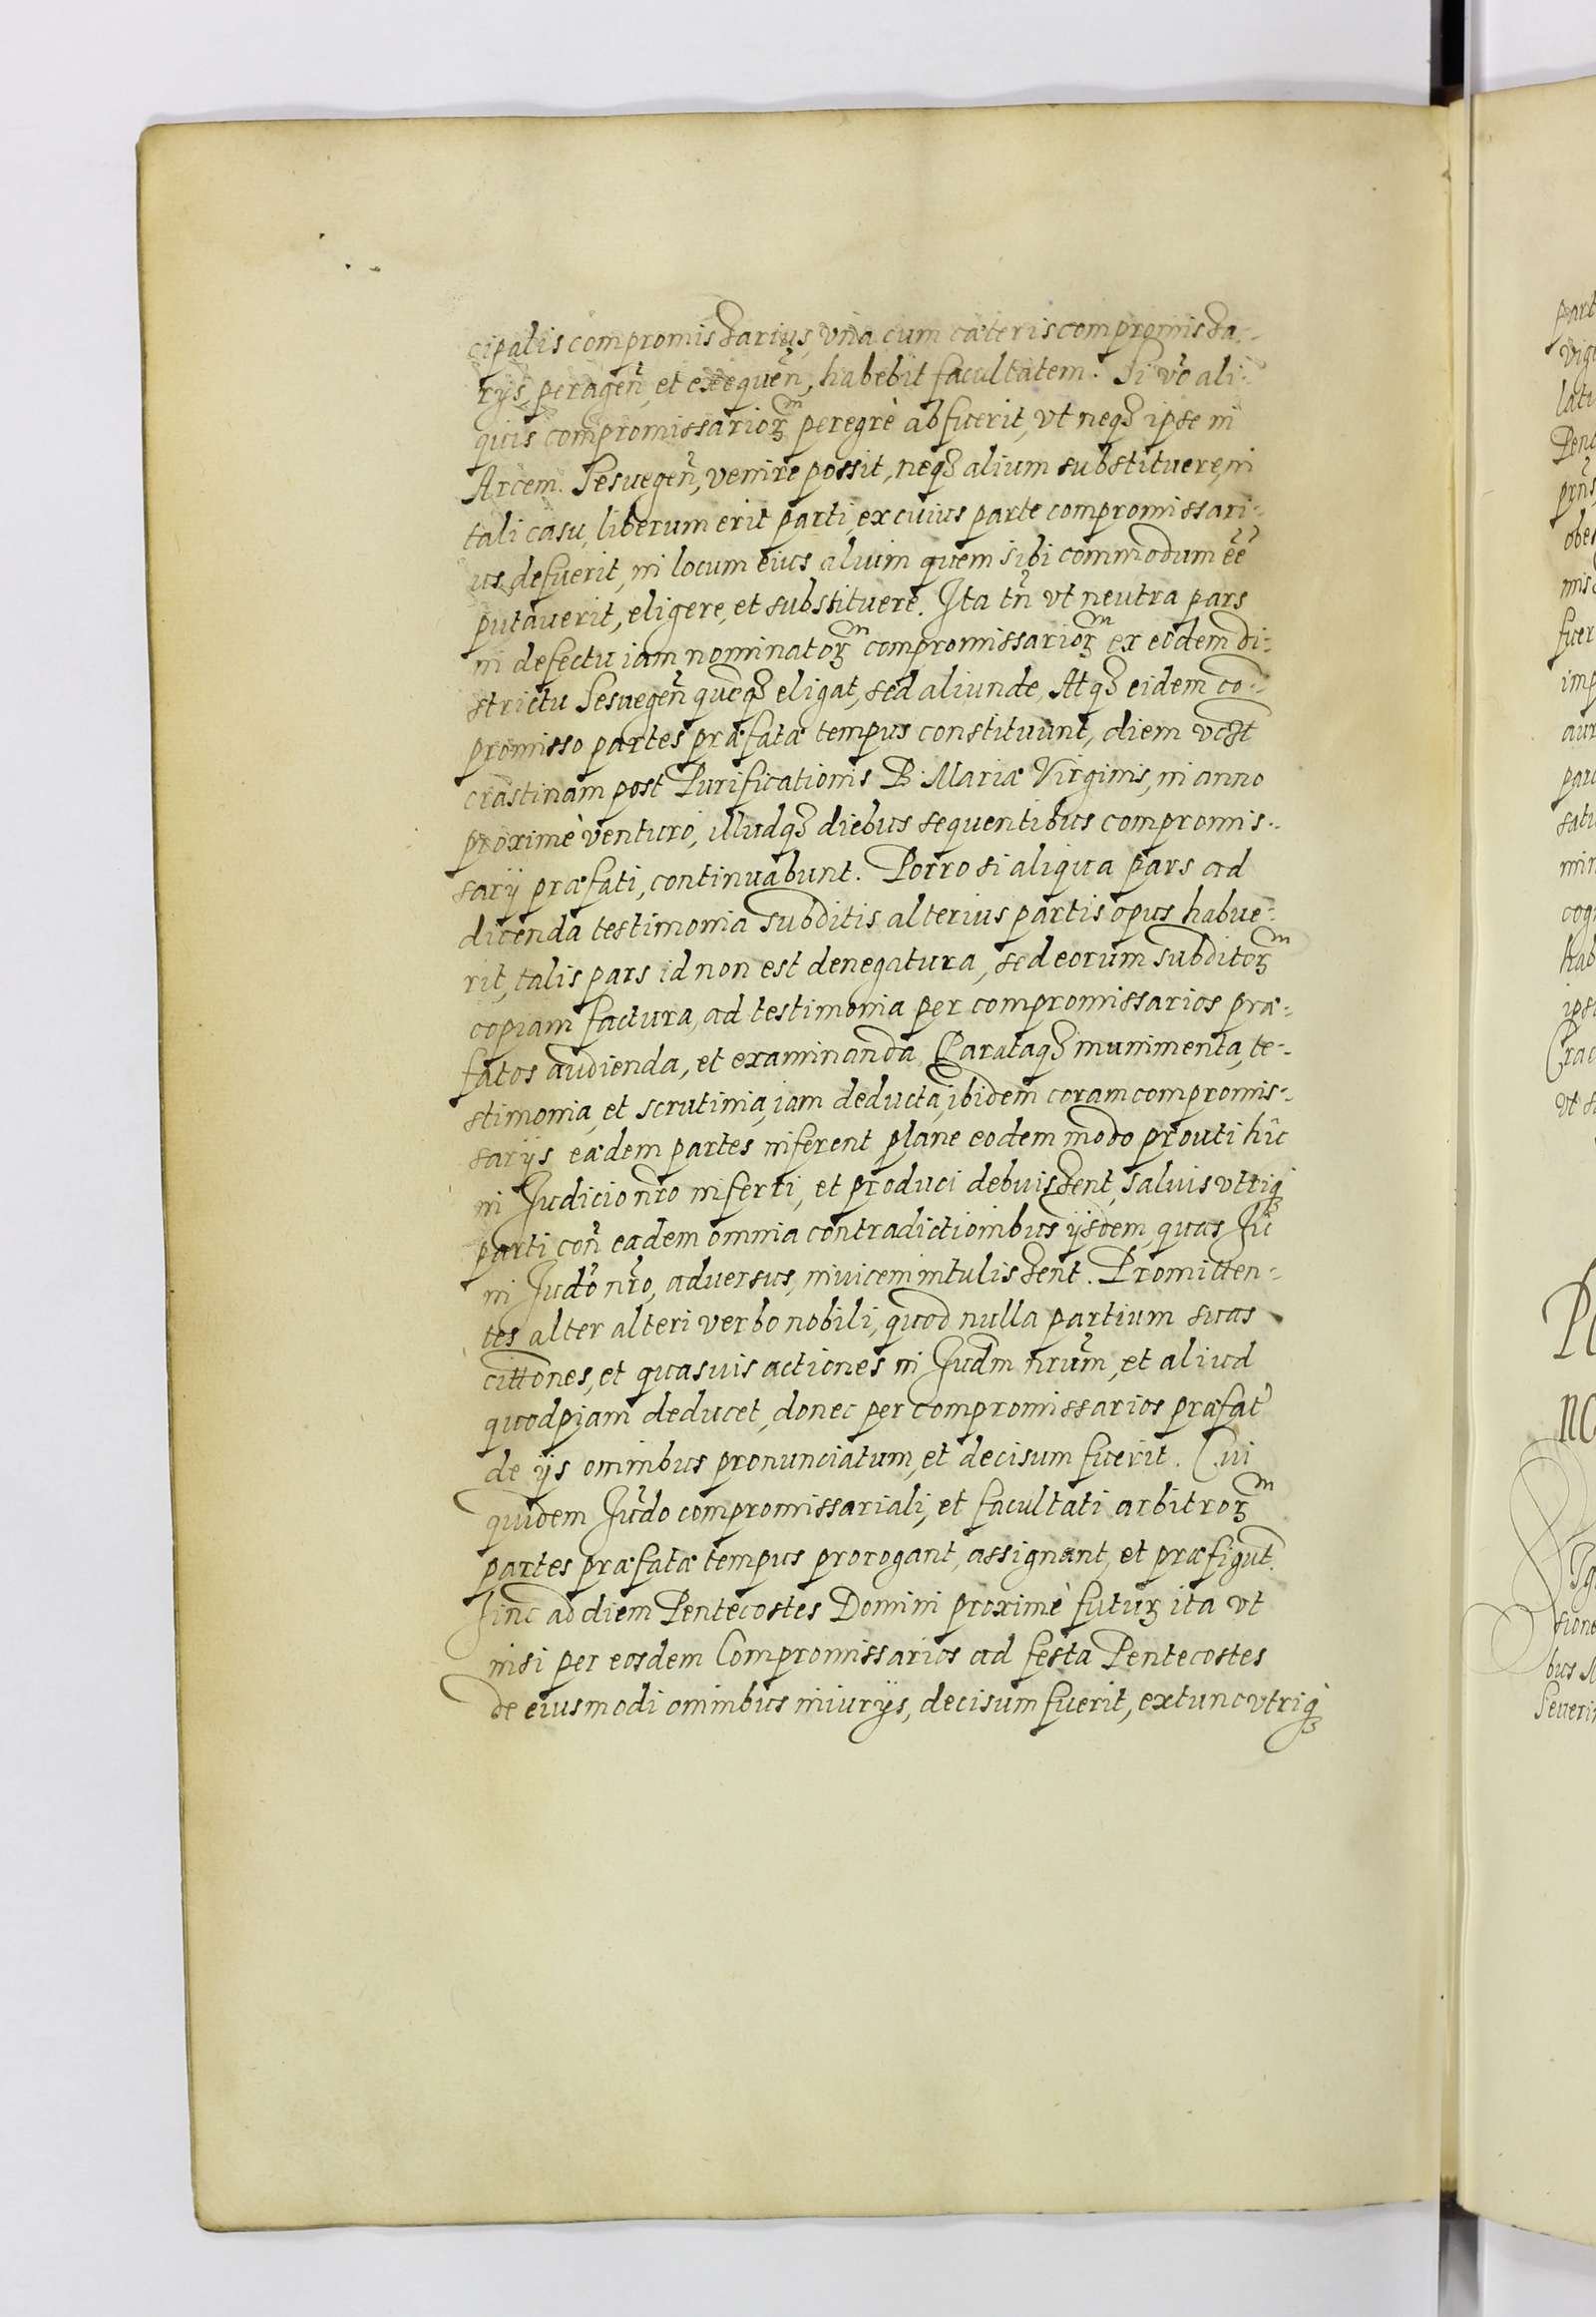 cipalis compromissarius, vna cum cæteris compromissa-
rijs, peragen̄, et exequen̄, habebit facultatem. Si vo̅ ali-
quis compromissarioꝝm peregrè abfuerit, vt neqꝫ ipse in
Arcem Sesuegen̄, venire possit, neqꝫ alium substituere, in
tali casu, liberum erit parti, ex cuius parte compromissari-
us defuerit, in locum eius alium quem sibi commodum ēē
putauerit, eligere, et substituere. Ita tn̄ vt neutra pars
in defectu iam nominatoꝝm compromissarioꝝm ex eodem di-
strictu Sesuegen̄ quēqꝫ eligat, sed aliunde, Atqꝫ eidem co̅-
promisso partes præfatæ tempus constituunt, diem vcꝫt
crastinam post Purificationis B. Mariæ Virginis, in anno
proximè venturo, illudqꝫ diebus sequentibus compromis-
sarij præfati, continuabunt. Porro si aliqua pars ad
dicenda testimonia subditis alterius partis opus habue-
rit, talis pars id non est denegatura, sed eorum subditoꝝm
copiam factura, ad testimonia per compromissarios præ-
fatos audienda, et examinanda, Parataqꝫ munimenta, te-
stimonia, et scrutinia, iam deducta, ibidem coram compromis-
sarijs eædem partes inferent plane eodem modo prouti hîc
in Judicio nr̄o inferri, et produci debuissent, saluis vtriqꝫ
parti con̄ eadem omnia contradictionibus ijsdem, quas hîc
in Judo̅ nr̄o, aduersus, inuicem intulissent. Promitten-
tes alter alteri verbo nobili, quod nulla partium suas
citt̄ones, et quasuis actiones in Judm̄ nr̄um, et aliud
quodpiam deducet, donec per compromissarios præfat̄
de ijs omnibus pronunciatum, et decisum fuerit. Cui
quidem Jud̄o compromissariali, et facultati arbitroꝝm
partes præfatæ tempus prorogant, assignant, et præfigūt
Hinc ad diem Pentecostes Domini proximè futuꝝ ita vt
nisi per eosdem Compromissarios ad festa Pentecostes
de eiusmodi omnibus iniurijs, decisum fuerit, extunc vtriqꝫ